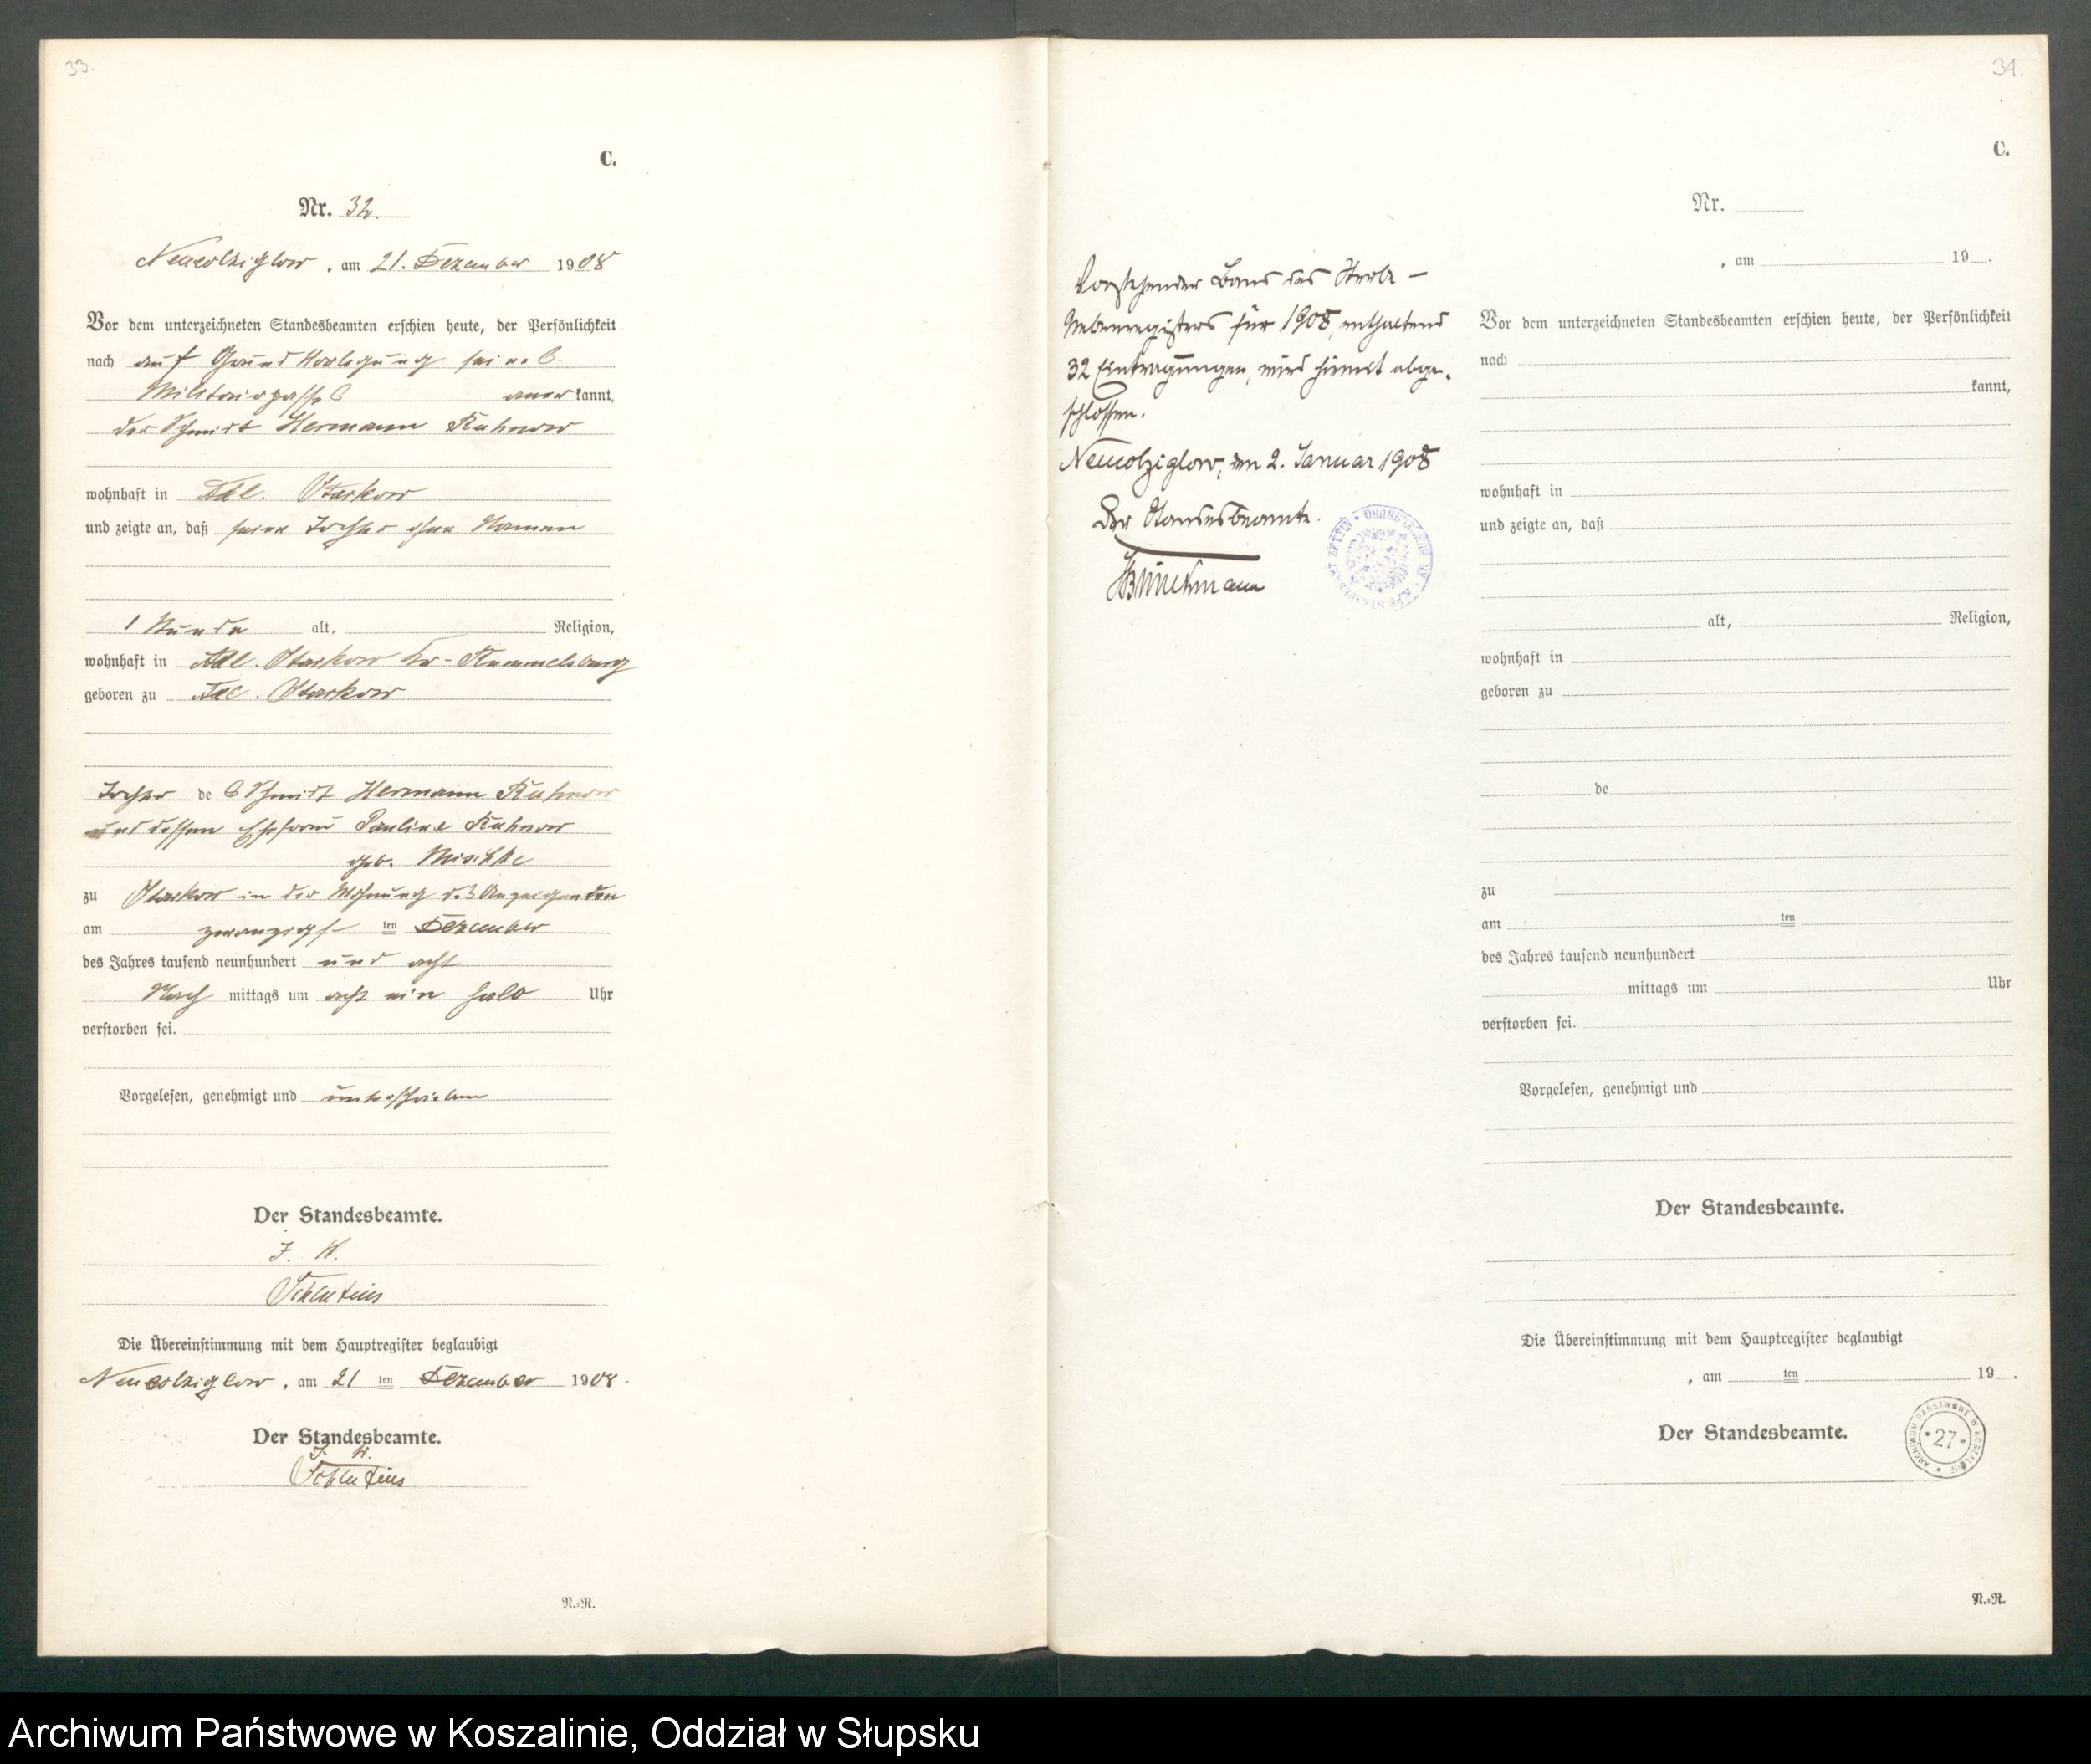 33.
C.
Nr. 32.
Neukolziglow, am 21. Dezember 1908
Vor dem unterzeichneten Standesbeamten erschien heute, der Persönlichkeit
nach auf Grund Vorlegung seines
Militairpasses anerkannt,
der Schmidt Hermann Kuhnow
wohnhaft in Adl. Starkow
und zeigte an, daß seine Tochter ohne Namen
1 Stunde alt, Religion,
wohnhaft in Adl. Starkow Kr. Rummelsburg
geboren zu Adl. Starkow
Tochter des Schmidt Hermann Kuhnow
und dessen Ehefrau Pauline Kuhnow
geb.
zu Starkow in der Wohnung des Anzeigenden
am zwanzigsten Dezember
des Jahres tausend neunhundert und acht
Nachmittags um acht ein halb Uhr
verstorben sei.
Vorgelesen, genehmigt und unterschrieben
Der Standesbeamte.
J. V.
Schlutius
Die Übereinstimmung mit dem Hauptregister beglaubigt
Neukolziglow, am 21 ten Dezember 1908.
Der Standesbeamte.
J. V.
Schlutius
N.-R.
34.
C.
Vorstehender Band des Sterbe-
Nebenregisters für 1908, enthaltend
32 Eintragungen, wird hiermit abge-
schlossen.
Neukolziglow, den 2. Januar 1908
Der Standesbeamte.
Nr.
, am 19 .
Vor dem unterzeichneten Standesbeamten erschien heute, der Persönlichkeit
nach
kannt,
wohnhaft in
und zeigte an, daß
alt, Religion,
wohnhaft in
geboren zu
de
zu
am ten
des Jahres tausend neunhundert
mittags um Uhr
verstorben sei.
Vorgelesen, genehmigt und
Der Standesbeamte.
Die Übereinstimmung mit dem Hauptregister beglaubigt
, am ten 19 .
Der Standesbeamte.
ARCHIWUM PAŃSTWOWE W KOSZALINIE
* 27 *
N.-R.
Archiwum Państwowe w Koszalinie, Oddział w Słupsku